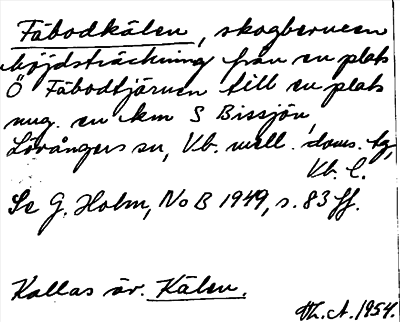 Fäbodkälen, skogbevuxen
höjdsträckning från en plats
Ö Fäbodtjärnen till en plats
ung. en km S Bissjön,
Lövångers sn, Vb. mell. doms. tg,
Vb. l.
Se G. Holm, NoB 1949, s. 83 ff.
Kallas äv. Kälen.
Th. A. 1954.